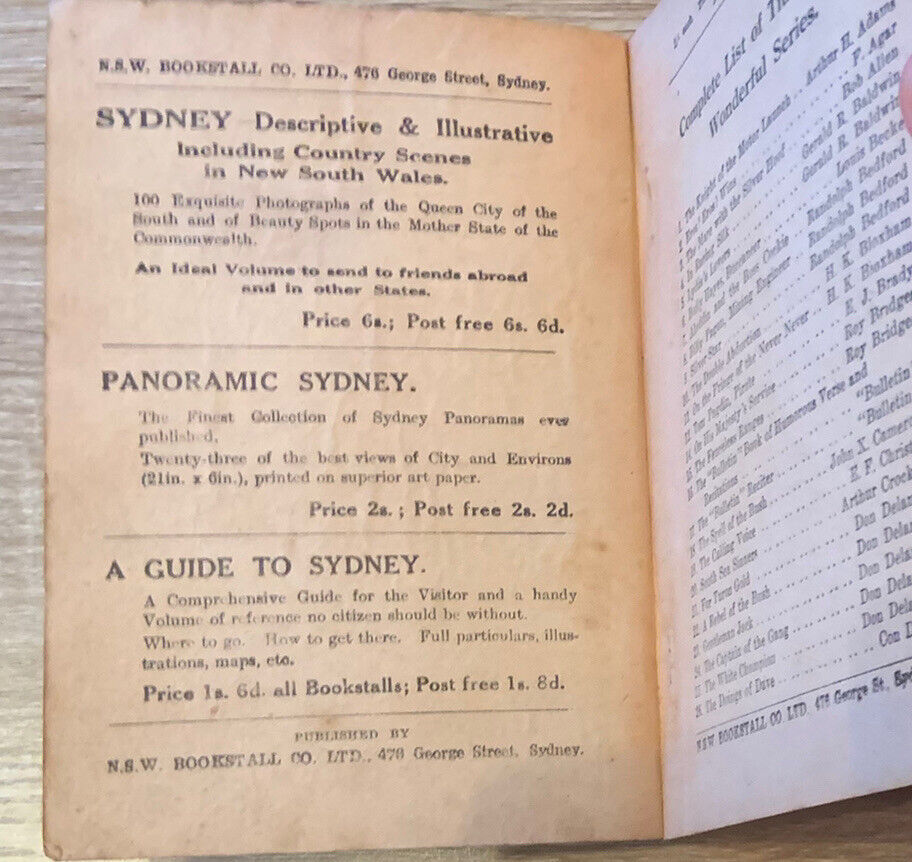 N.S.W. BOOKSTALL CO. LTD., 476 George Street, Sydney.
SYDNEY Descriptive & Illustrative
Including Country Scenes
in New South Wales.
100 Exquisite Photographs of the Queen City of the
South and of Beauty Spots in the Mother State of the
Commonwealth.
An Ideal Volume to send to friends abroad
and in other States.
Price 6s.; Post free 6s. 6d.
PANORAMIC SYDNEY.
The Finest Collection of Sydney Panoramas ever
published.
Twenty-three of the best views of City and Environs
(21in. x 6in.), printed on superior art paper.
Price 2s.; Post free 2s. 2d.
A GUIDE TO SYDNEY.
A Comprehensive Guide for the Visitor and a handy
Volume of reference no citizen should be without.
Where to go. How to get there. Full particulars, illus-
trations, maps, etc.
Price 1s. 6d. all Bookstalls; Post free 1s. 8d.
PUBLISHED BY
N.S.W. BOOKSTALL CO. LTD., 476 George Street, Sydney.
Complete List of
Wonderful Series.
1. The Knight of the Motor Launch Arthur H. Adams
F. Agar
3. The Mare with the Silver Hoof Bob Allen
4. In Racing Silk Gerald R. Baldwin
5. Lydia's Lovers Gerald R. Baldwin
6. Bully Hayes, Buccaneer Louis Becke
7. Aladdin and the Boss Cockie Randolph Bedford
8. Billy Pagan, Mining Engineer Randolph Bedford
9. Silver Star Randolph Bedford
10. The Double Abduction H. K. Bloxham
11. On the Fringe of the Never Never H. K. Bloxham
12. Tom Pagdin, Pirate E. J. Brady
13. On His Majesty's Service Roy Bridges
14. The Fenceless Ranges Roy Bridges
15. The "Bulletin" Book of Humorous Verse and
Recitations "Bulletin
17. The "Bulletin" Reciter "Bulletin
18. The Spell of the Bush John X. Camero
19. The Calling Voice E. F. Christ
20. South Sea Sinners Arthur Crock
21. For Turon Gold Don Delan
22. A Rebel of the Bush Don Delan
23. Gentleman Jack Don Dela
24. The Captain of the Gang Don Dela
25. The White Champion Don Dela
26. The Doings of Dave Con D
NSW BOOKSTALL CO. LTD. 476 George St., Syd